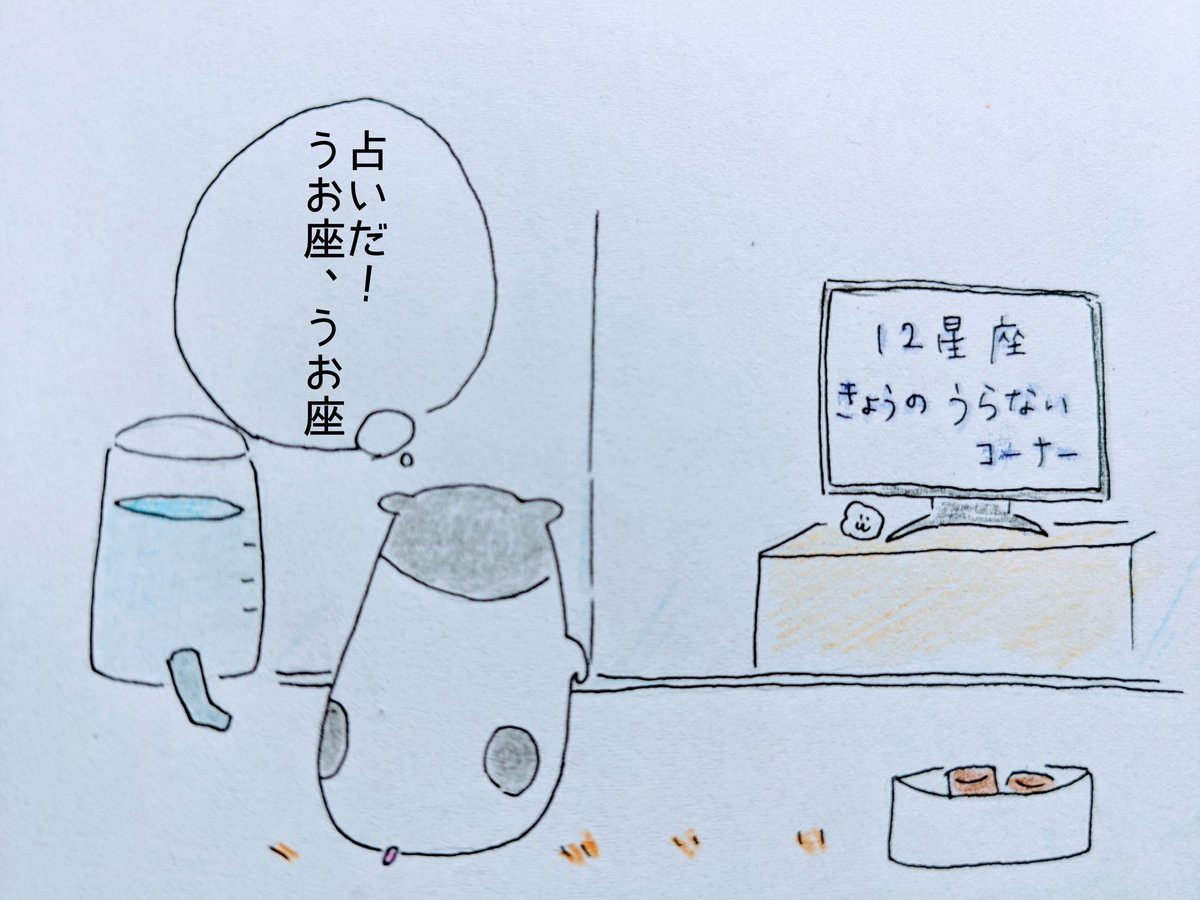 占いだ！
うお座、うお座
12星座
きょうのうらない
コーナー